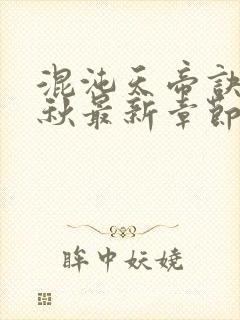 混沌天帝诀
秋最新章節
眸中妖娆